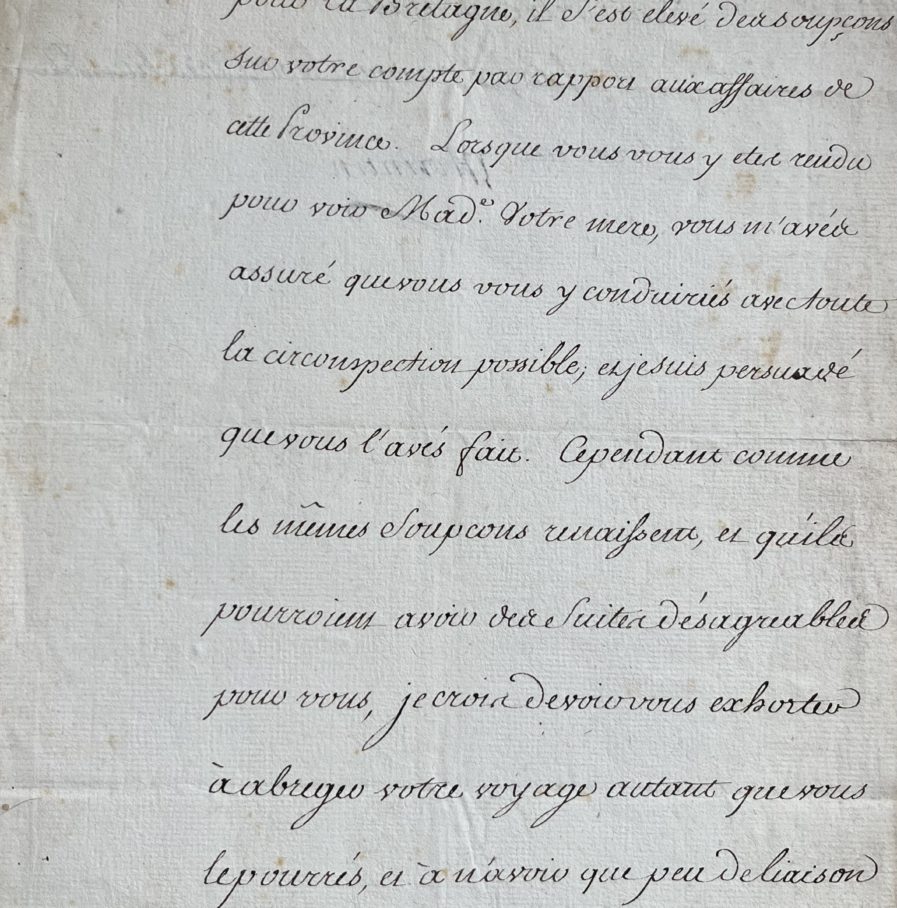 pour la Bretagne, il s'est elevé des soupçons
sur votre compte par rapport aux affaires de
cette Province. Lorsque vous vous y etes rendu
pour voir Mad.e Votre mere, vous m'avés
assuré que vous vous y conduiriés avec toute
la circonspection possible; et je suis persuadé
que vous l'avés fait. Cependant comme
les mêmes soupcons renaissent, et qu'ils
pourroient avoir des suites désagreables
pour vous, je crois devoir vous exhorter
à abreger votre voyage autant que vous
le pourrés, et à n'avoir que peu de liaison